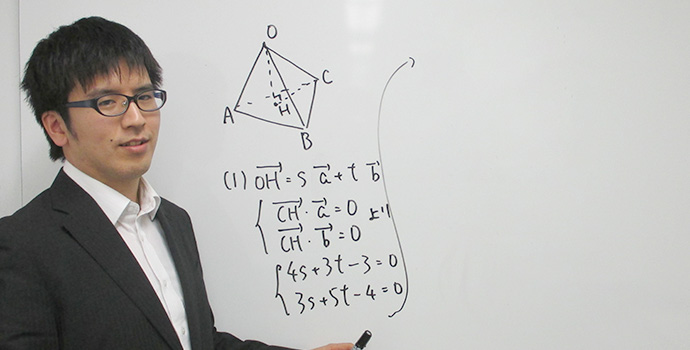 O
C
A
H
B
(1) $\overrightarrow{OH} = s\vec{a} + t\vec{b}$
$\overrightarrow{CH} \cdot \vec{a} = 0$ より
$\overrightarrow{CH} \cdot \vec{b} = 0$
4s+3t-3=0
3s+5t-4=0